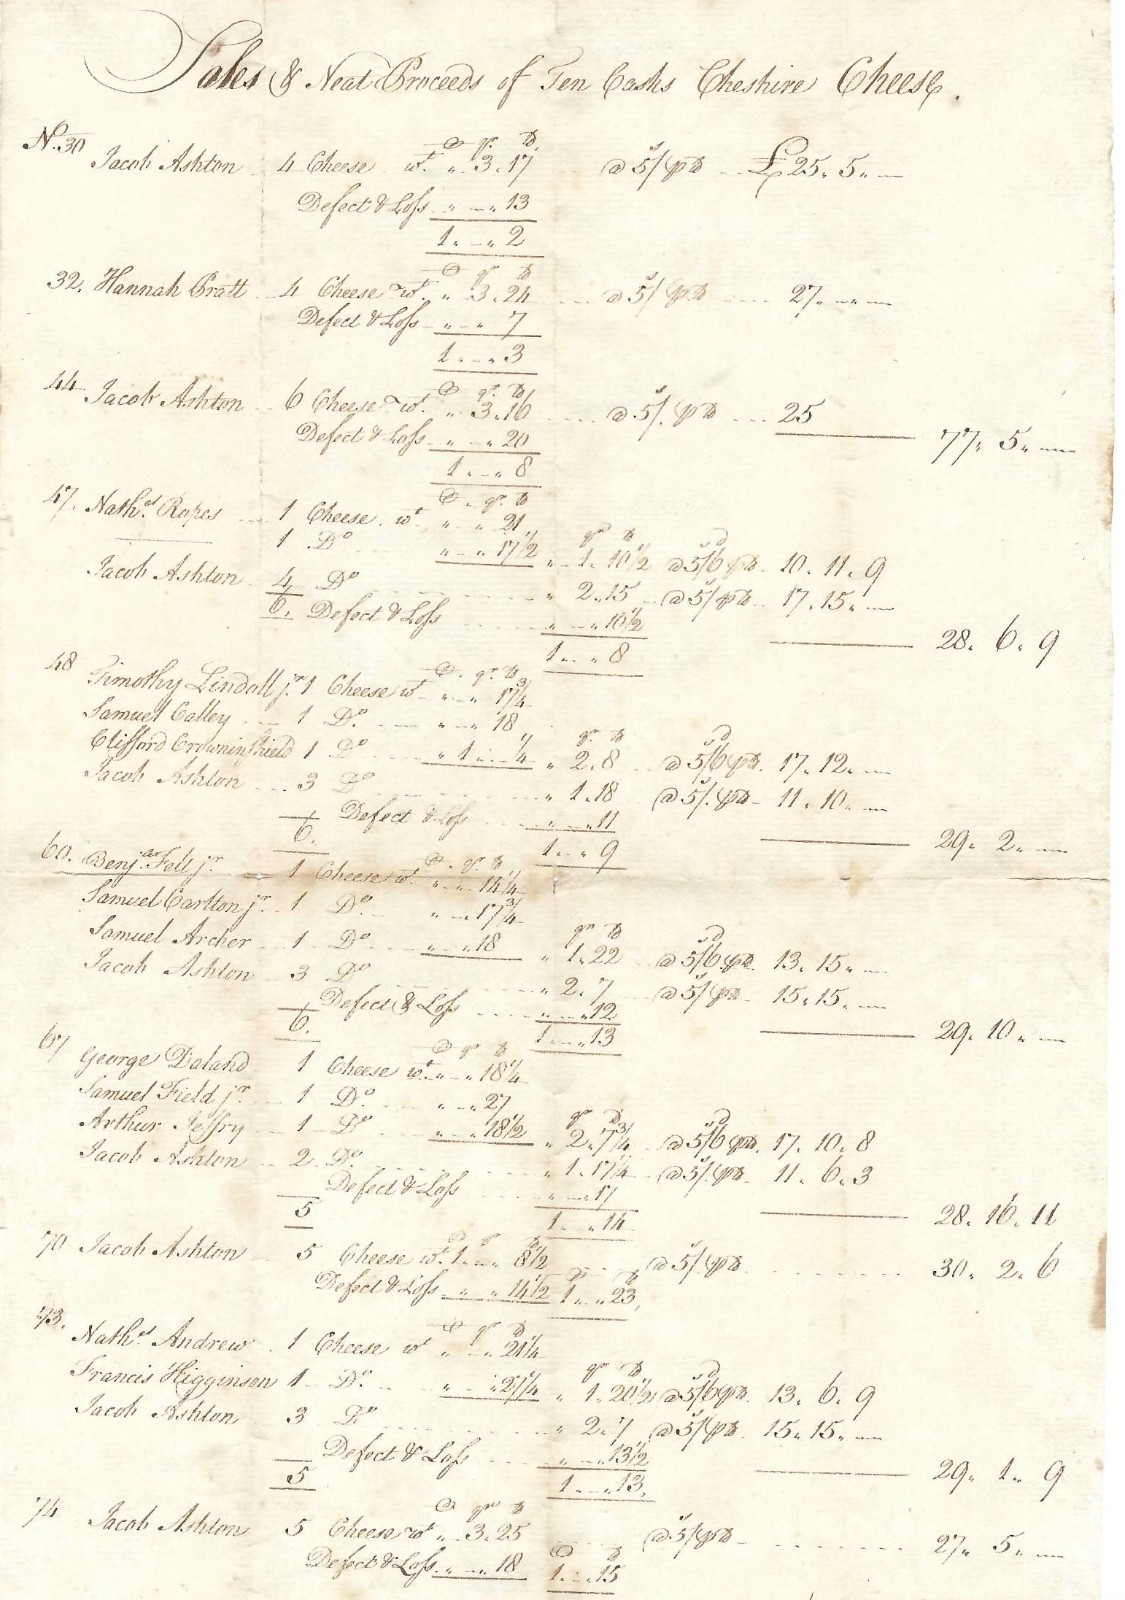 Sales & Neat Proceeds of Ten Casks Cheshire Cheese.
No. 30 C qr. lb
Jacob Ashton 4 Cheese wt. " 3. 17 @ 5/ p lb £25. 5. —
Defect & Loss " — " 13
1. — " 2
C qr lb
32. Hannah Pratt 4 Cheese wt. " 3. 24 @ 5/ p lb 27. — " —
Defect & Loss " " 7
1. — " 3
C qr. lb
44 Jacob Ashton 6 Cheese wt. " 3. 16 @ 5/. p lb 25
Defect & Loss " — " 20 77. 5. —
1. — " 8
C. qr. lb
47. Nathel. Ropes 1 Cheese. wt " " 21
1 Do " — " 17 1/2 qr lb " 1. 10 1/2 @ 5/6 p lb 10. 11. 9
Jacob Ashton 4 Do " 2. 15 @ 5/ p lb 17. 15. —
6. Defect & Loss " " 10 1/2 28. 6. 9
1. " 8
C. qr. lb
48 Timothy Lindall jr 1 Cheese wt " " 17 3/4
Samuel Calley 1 Do. " — " 18
Clifford Crowninshield 1 Do " 1 " — 1/4 qr lb " 2. 8 @ 5/6 p lb. 17. 12. —
Jacob Ashton 3 Do " 1. 18 @ 5/. p lb 11. 10. —
Defect & Loss " — " 11
6. 1. — " 9 29. 2. —
C. qr. lb
60. Benjan. Felt jr 1 Cheese wt. " " 14 1/4
Samuel Carlton jr. 1 Do. " — " 17 3/4
Samuel Archer 1 Do " — " 18 qr lb " 1. 22 @ 5/6 p lb. 13. 15. —
Jacob Ashton 3 Do " 2. 7 @ 5/ p lb 15. 15. —
Defect & Loss " — " 12
6. 1. — " 13 29. 10. —
C qr lb
67 George Daland 1 Cheese wt. " — " 18 1/4
Samuel Field jr. 1 Do. " — " 27
Arthur Jeffry 1 Do " — " 18 1/2 qr lb " 2. 7 3/4 @ 5/6 p lb. 17. 10. 8
Jacob Ashton 2 Do. " 1. 17 1/4 @ 5/. p lb 11. 6. 3
Defect & Loss " — " 17
5 1. " 14 28. 16. 11
70 Jacob Ashton 5 Cheese wt. 1. — " 8 1/2 @ 5/ p lb 30. 2. 6
Defect & Loss " " 14 1/2 1 " " 23
C qr lb
73. Nathel Andrew 1 Cheese wt " " 21 1/4
Francis Higginson 1 Do. " — " 27 1/4 qr lb " 1. 20 1/2 @ 5/6 p lb. 13. 6. 9
Jacob Ashton 3 Do " 2. 7 @ 5/ p lb 15. 15. —
Defect & Loss " — " 13 1/2
5 1. — " 13. 29. 1. 9
C qr lb
74 Jacob Ashton 5 Cheese wt " 3. 25 @ 5/ p lb 27. 5. —
Defect & Loss " — " 18 1. — " 15